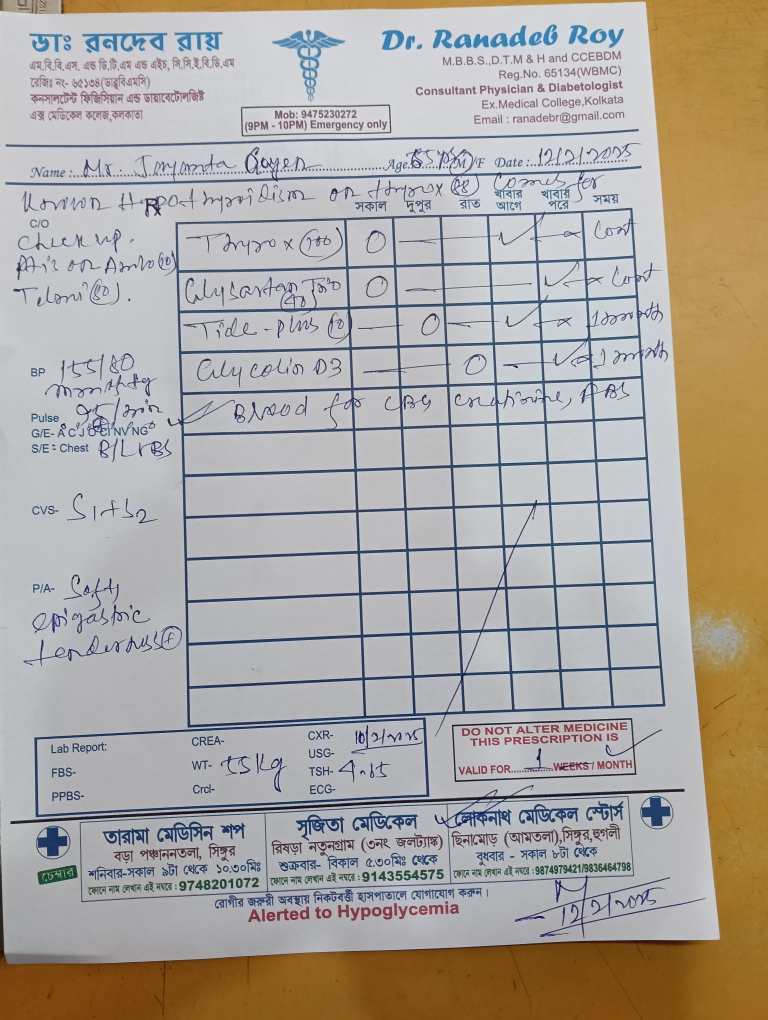 ডাঃ রনদেব রায়
এম.বি.বি.এস, এন্ড ডি.টি.এম এন্ড এইচ, সি.সি.ই.বি.ডি.এম
রেজিঃ নং- ৬৫১৩৪(ডাব্লুবিএমসি)
কনসালটেন্ট ফিজিসিয়ান এন্ড ডায়াবেটোলজিষ্ট
এক্স মেডিকেল কলেজ,কলকাতা
Mob: 9475230272
(9PM - 10PM) Emergency only
Dr. Ranadeb Roy
M.B.B.S.,D.T.M & H and CCEBDM
Reg.No. 65134(WBMC)
Consultant Physician & Diabetologist
Ex.Medical College,Kolkata
Email : ranadebr@gmail.com
Name : Mr. Jayanta Goyen Age 55 yrs M/F Date : 12/2/2025
Known Hypothyroidism on thyrox (88) comes for
Rx সকাল দুপুর রাত খাবার আগে খাবার পরে সময়
C/O
check up.
on Amlo
Telmi (80).
Thyrox (100) O — ✓ — x Cont
Trio (40) O — ✓ x Cont
Tide-plus (10) — O — ✓ — x 1 month
Glycolin D3 — O — ✓ 1 month
✓ Blood for CBG creatinine, FBS
BP 155/80
mmHg
Pulse 95/min
G/E- A C J O CI NV NG
S/E = Chest B/L VBS
CVS- S1+S2
P/A- Soft,
epigastric
tenderness (+)
Lab Report:
FBS-
PPBS-
CREA-
WT- 55 kg
Crcl-
CXR- 10/2/2025
USG-
TSH- 4.65
ECG-
DO NOT ALTER MEDICINE
THIS PRESCRIPTION IS
VALID FOR......1......WEEKS / MONTH
চেম্বার
তারামা মেডিসিন শপ
বড়া পঞ্চাননতলা, সিঙ্গুর
শনিবার-সকাল ৯টা থেকে ১০.৩০মিঃ
ফোনে নাম লেখান এই নম্বরে : 9748201072
সৃজিতা মেডিকেল
রিষড়া নতুনগ্রাম (৩নং জলট্যাঙ্ক)
শুক্রবার- বিকাল ৫.৩০মিঃ থেকে
ফোনে নাম লেখান এই নম্বরে : 9143554575
লোকনাথ মেডিকেল স্টোর্স
ছিনামোড় (আমতলা),সিঙ্গুর,হুগলী
বুধবার - সকাল ৮টা থেকে
ফোনে নাম লেখান এই নম্বরে : 9874979421/9836464798
রোগীর জরুরী অবস্থায় নিকটবর্ত্তী হাসপাতালে যোগাযোগ করুন।
Alerted to Hypoglycemia
12/2/2025